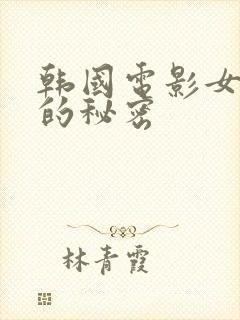 韩國电影女
的秘密
林青霞